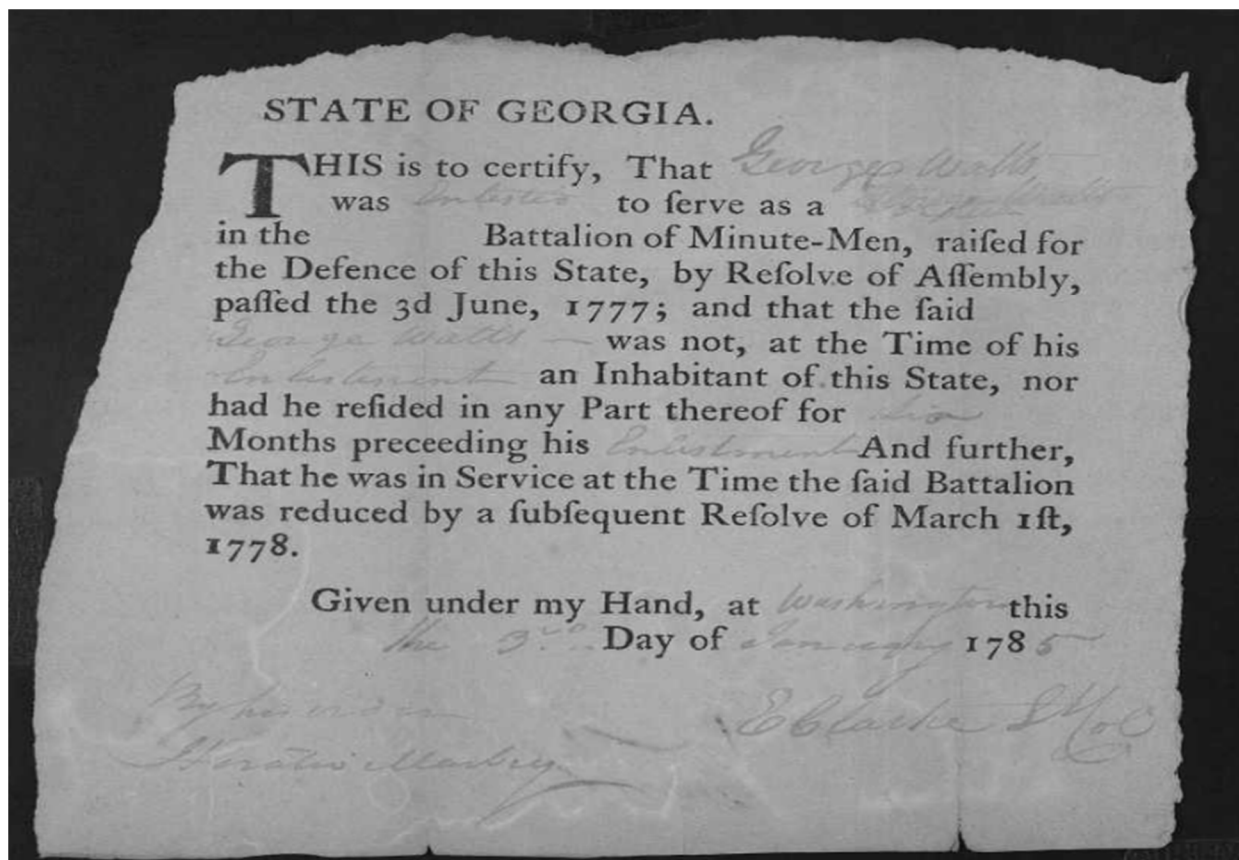 STATE OF GEORGIA.
THIS is to certify, That George Watts
was to ſerve as a
in the Battalion of Minute-Men, raiſed for
the Defence of this State, by Reſolve of Aſſembly,
paſſed the 3d June, 1777; and that the ſaid
George Watts was not, at the Time of his
Enlistment an Inhabitant of this State, nor
had he reſided in any Part thereof for Six
Months preceeding his Enlistment And further,
That he was in Service at the Time the ſaid Battalion
was reduced by a ſubſequent Reſolve of March 1ſt,
1778.
Given under my Hand, at Washington this
the 3rd Day of January 1785
By his order
E Clarke